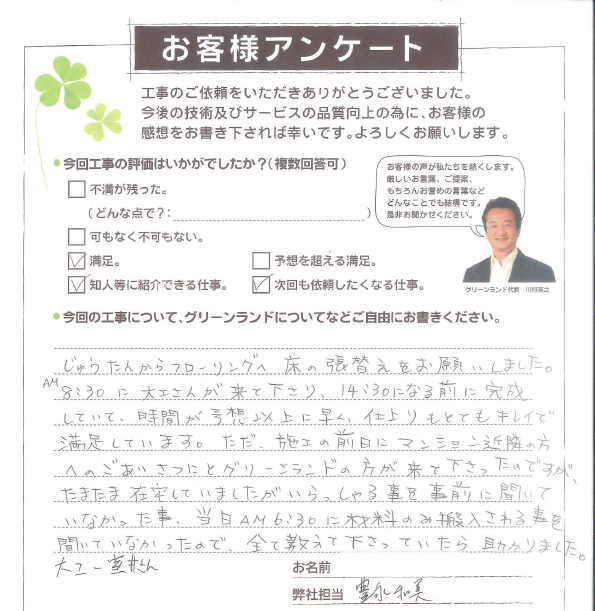 お客様アンケート
工事のご依頼をいただきありがとうございました。
今後の技術及びサービスの品質向上の為に、お客様の
感想をお書き下されば幸いです。よろしくお願いします。
●今回工事の評価はいかがでしたか?(複数回答可)
不満が残った。
(どんな点で?:)
可もなく不可もない。
満足。
予想を超える満足。
知人等に紹介できる仕事。
次回も依頼したくなる仕事。
お客様の声が私たちを熱くします。
厳しいお言葉、ご提案、
もちろんお誉めの言葉など
どんなことでも結構です。
是非お聞かせください。
グリーンランド代表 川村英之
●今回の工事について、グリーンランドについてなどご自由にお書きください。
じゅうたんからフローリングへ 床の張替えをお願いしました。
AM8:30に大工さんが来て下さり、14:30になる前に完成
していて、時間が予想以上に早く、仕上りもとてもキレイで
満足しています。ただ、施工の前日にマンション近隣の方
へのごあいさつにとグリーンランドの方が来て下さったのですが、
たまたま在宅していましたがいらっしゃる事を事前に聞いて
いなかった事、当日AM6:30に材料のみ搬入される事を
聞いていなかったので、全て教えて下さっていたら助かりました。
大工
お名前
弊社担当 豊永和美